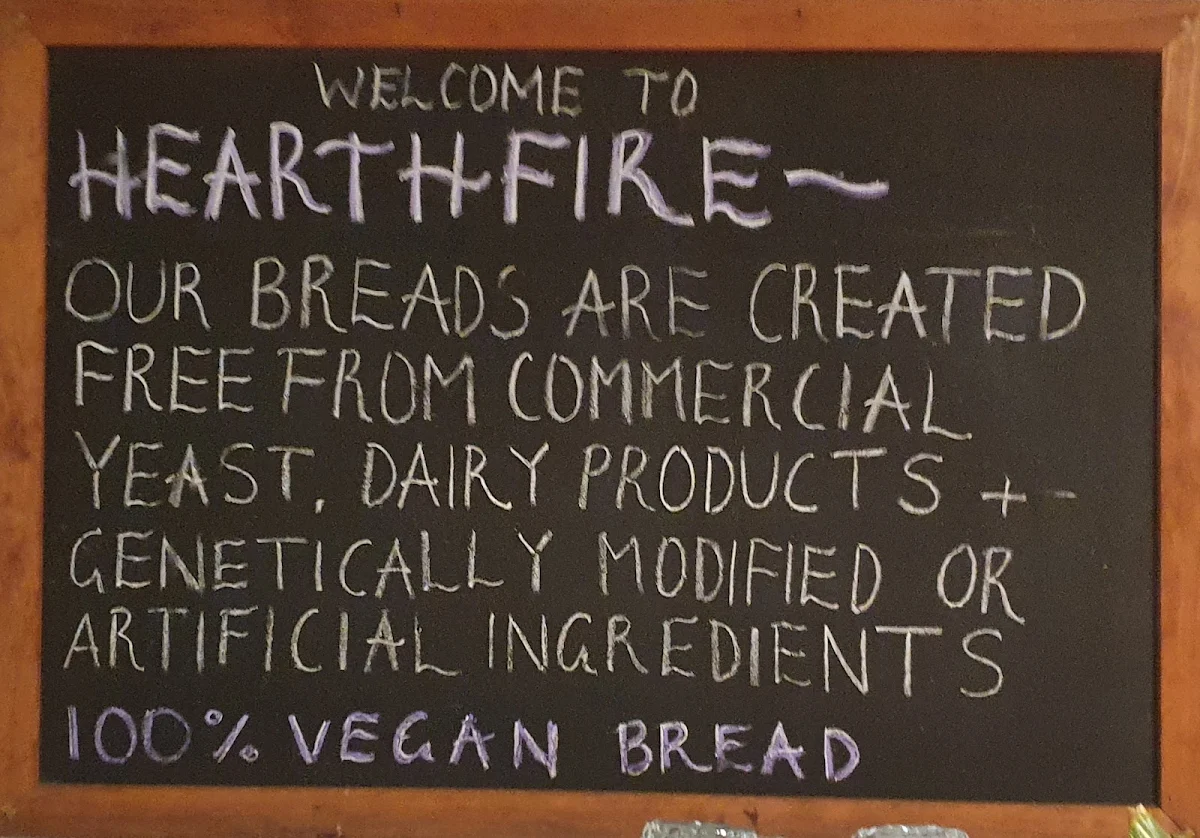 WELCOME TO
HEARTHFIRE~
OUR BREADS ARE CREATED
FREE FROM COMMERCIAL
YEAST, DAIRY PRODUCTS + -
GENETICALLY MODIFIED OR
ARTIFICIAL INGREDIENTS
100% VEGAN BREAD